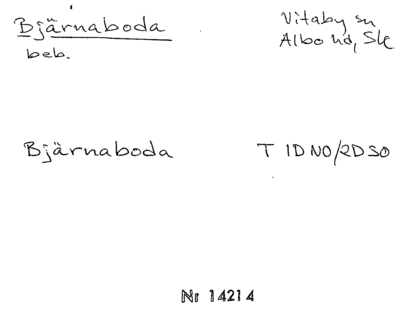 Bjärnaboda Vitaby sn
beb. Albo hd, Sk
Bjärnaboda T 1D NO/2D SO
Nr 14214